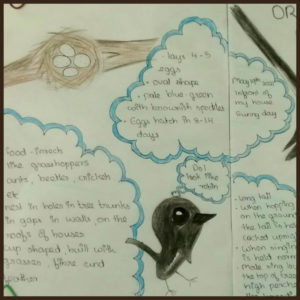 OR
- lays 4-5
eggs
• oval shape
• pale blue green
with brownish spotles
• Eggs hatch in 9-14
days
Magpie
infront of
my house
Sunny day
Do I
look like
robin
food - insects
like grasshoppers
ants, beetles, cricket
etc
nest in holes in tree trunks
in gaps in walls on the
roofs of houses
cup shaped, built with
grasses, fibre and
feather
• Long tail
• when hopping
on the ground
the tail is held
cocked upright
• when singing
is held norm
Male sing lou
the top of tree
high perche